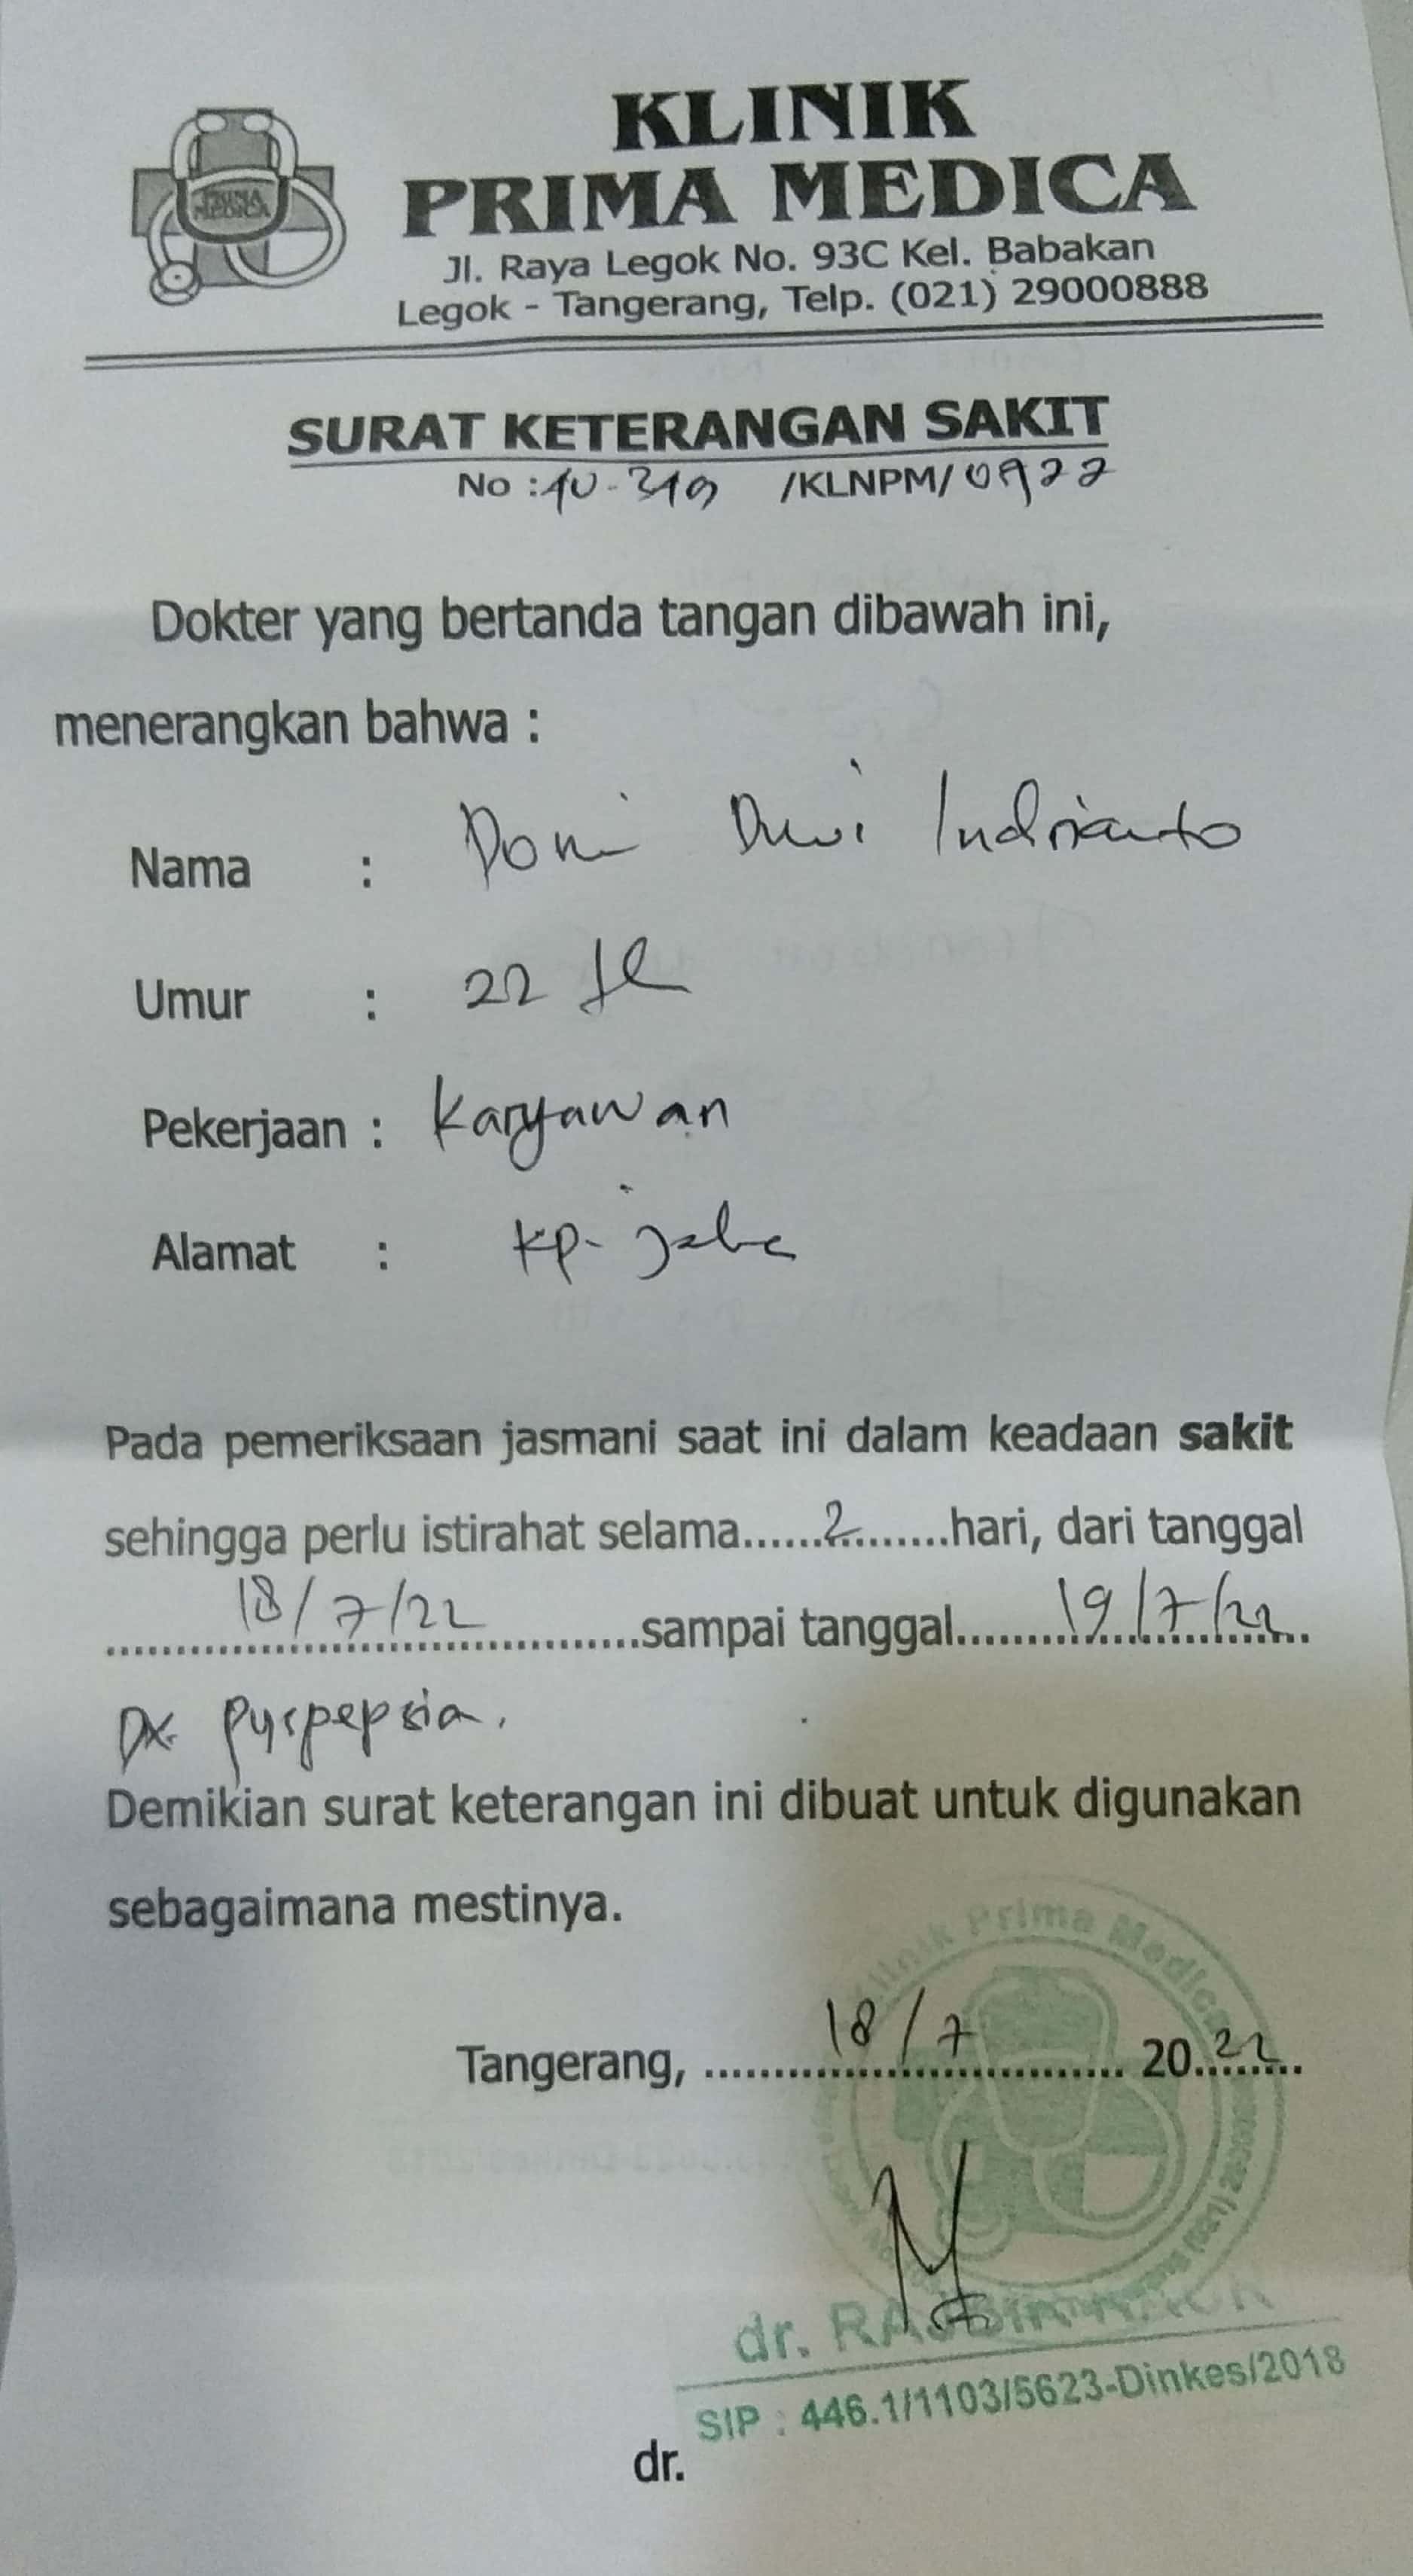 KLINIK
PRIMA MEDICA
PRIMA
MEDICA
Jl. Raya Legok No. 93C Kel. Babakan
Legok - Tangerang, Telp. (021) 29000888
SURAT KETERANGAN SAKIT
No : /KLNPM/
Dokter yang bertanda tangan dibawah ini,
menerangkan bahwa :
Nama : Doni Dwi Indrianto
Umur : 22
Pekerjaan : Karyawan
Alamat : Kp.
Pada pemeriksaan jasmani saat ini dalam keadaan sakit
sehingga perlu istirahat selama......2........hari, dari tanggal
18/7/22 sampai tanggal 19/7/22
Dx. Dyspepsia.
Demikian surat keterangan ini dibuat untuk digunakan
sebagaimana mestinya.
Klinik Prima Medica
Tangerang, 18/7 2022
dr.
SIP : 446.1/1103/5623-Dinkes/2018
dr.